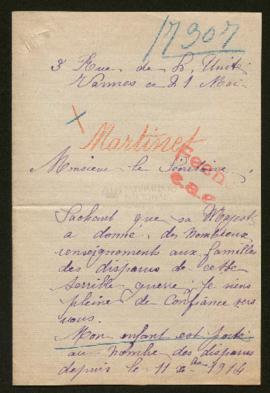 17307
3 Rue de L'Unité
Vannes ce 21 Mai
Martinet
Monsieur le Secrétaire,
Sachant que sa Majesté
a donné des nombreux
renseignements aux familles
des disparus de cette
terrible guerre, je viens
pleine de Confiance vers
vous.
Mon enfant est porté
au nombre des disparus
depuis le 11 1914